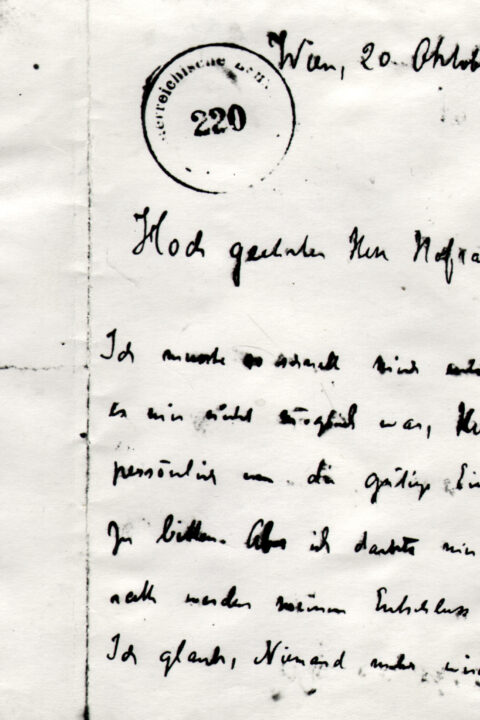 Wien, 20. Oktob
erreichische
220
Hoch geehrter Herr Hofra
Ich musste so schnell mich ents
es mir nicht möglich war, He
persönlich um die gütige Ei
zu bitten. Aber ich dachte mir
rath werden meinen Entschluss
Ich glaube, Niemand mehr wird